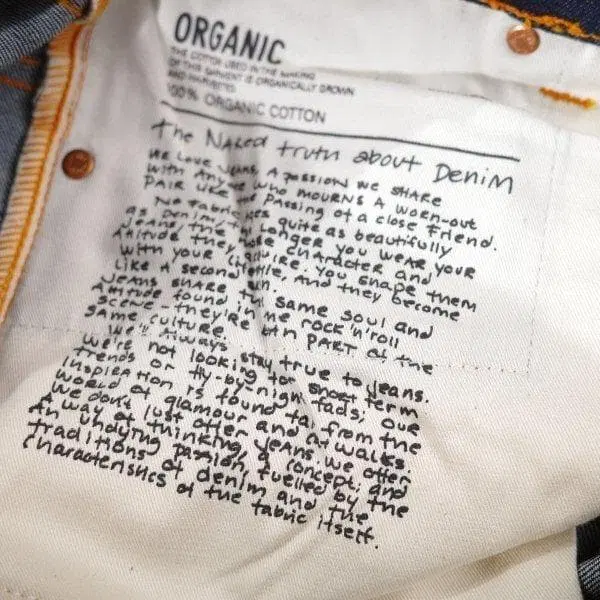 ORGANIC
THE COTTON USED IN THE MAKING
OF THIS GARMENT IS ORGANICALLY GROWN
AND HARVESTED
100% ORGANIC COTTON
The Naked truth about Denim
We love jeans. A passion we share
with anyone who mourns a worn-out
pair like the passing of a close friend.
No fabric ages quite as beautifully
as denim. The longer you wear your
jeans, the more character and
attitude they acquire. You shape them
with your lifestyle. And they become
like a second skin.
Jeans share the same soul and
attitude found in the rock'n'roll
scene - they're both part of the
same culture.
We'll always stay true to jeans.
We're not looking for short term
trends or fly-by-night fads; our
inspiration is found far from the
world of glamour and catwalks.
We don't just offer jeans, we offer
a way of thinking, a concept; and
an undying passion, fuelled by the
traditions of denim and the
characteristics of the fabric itself.